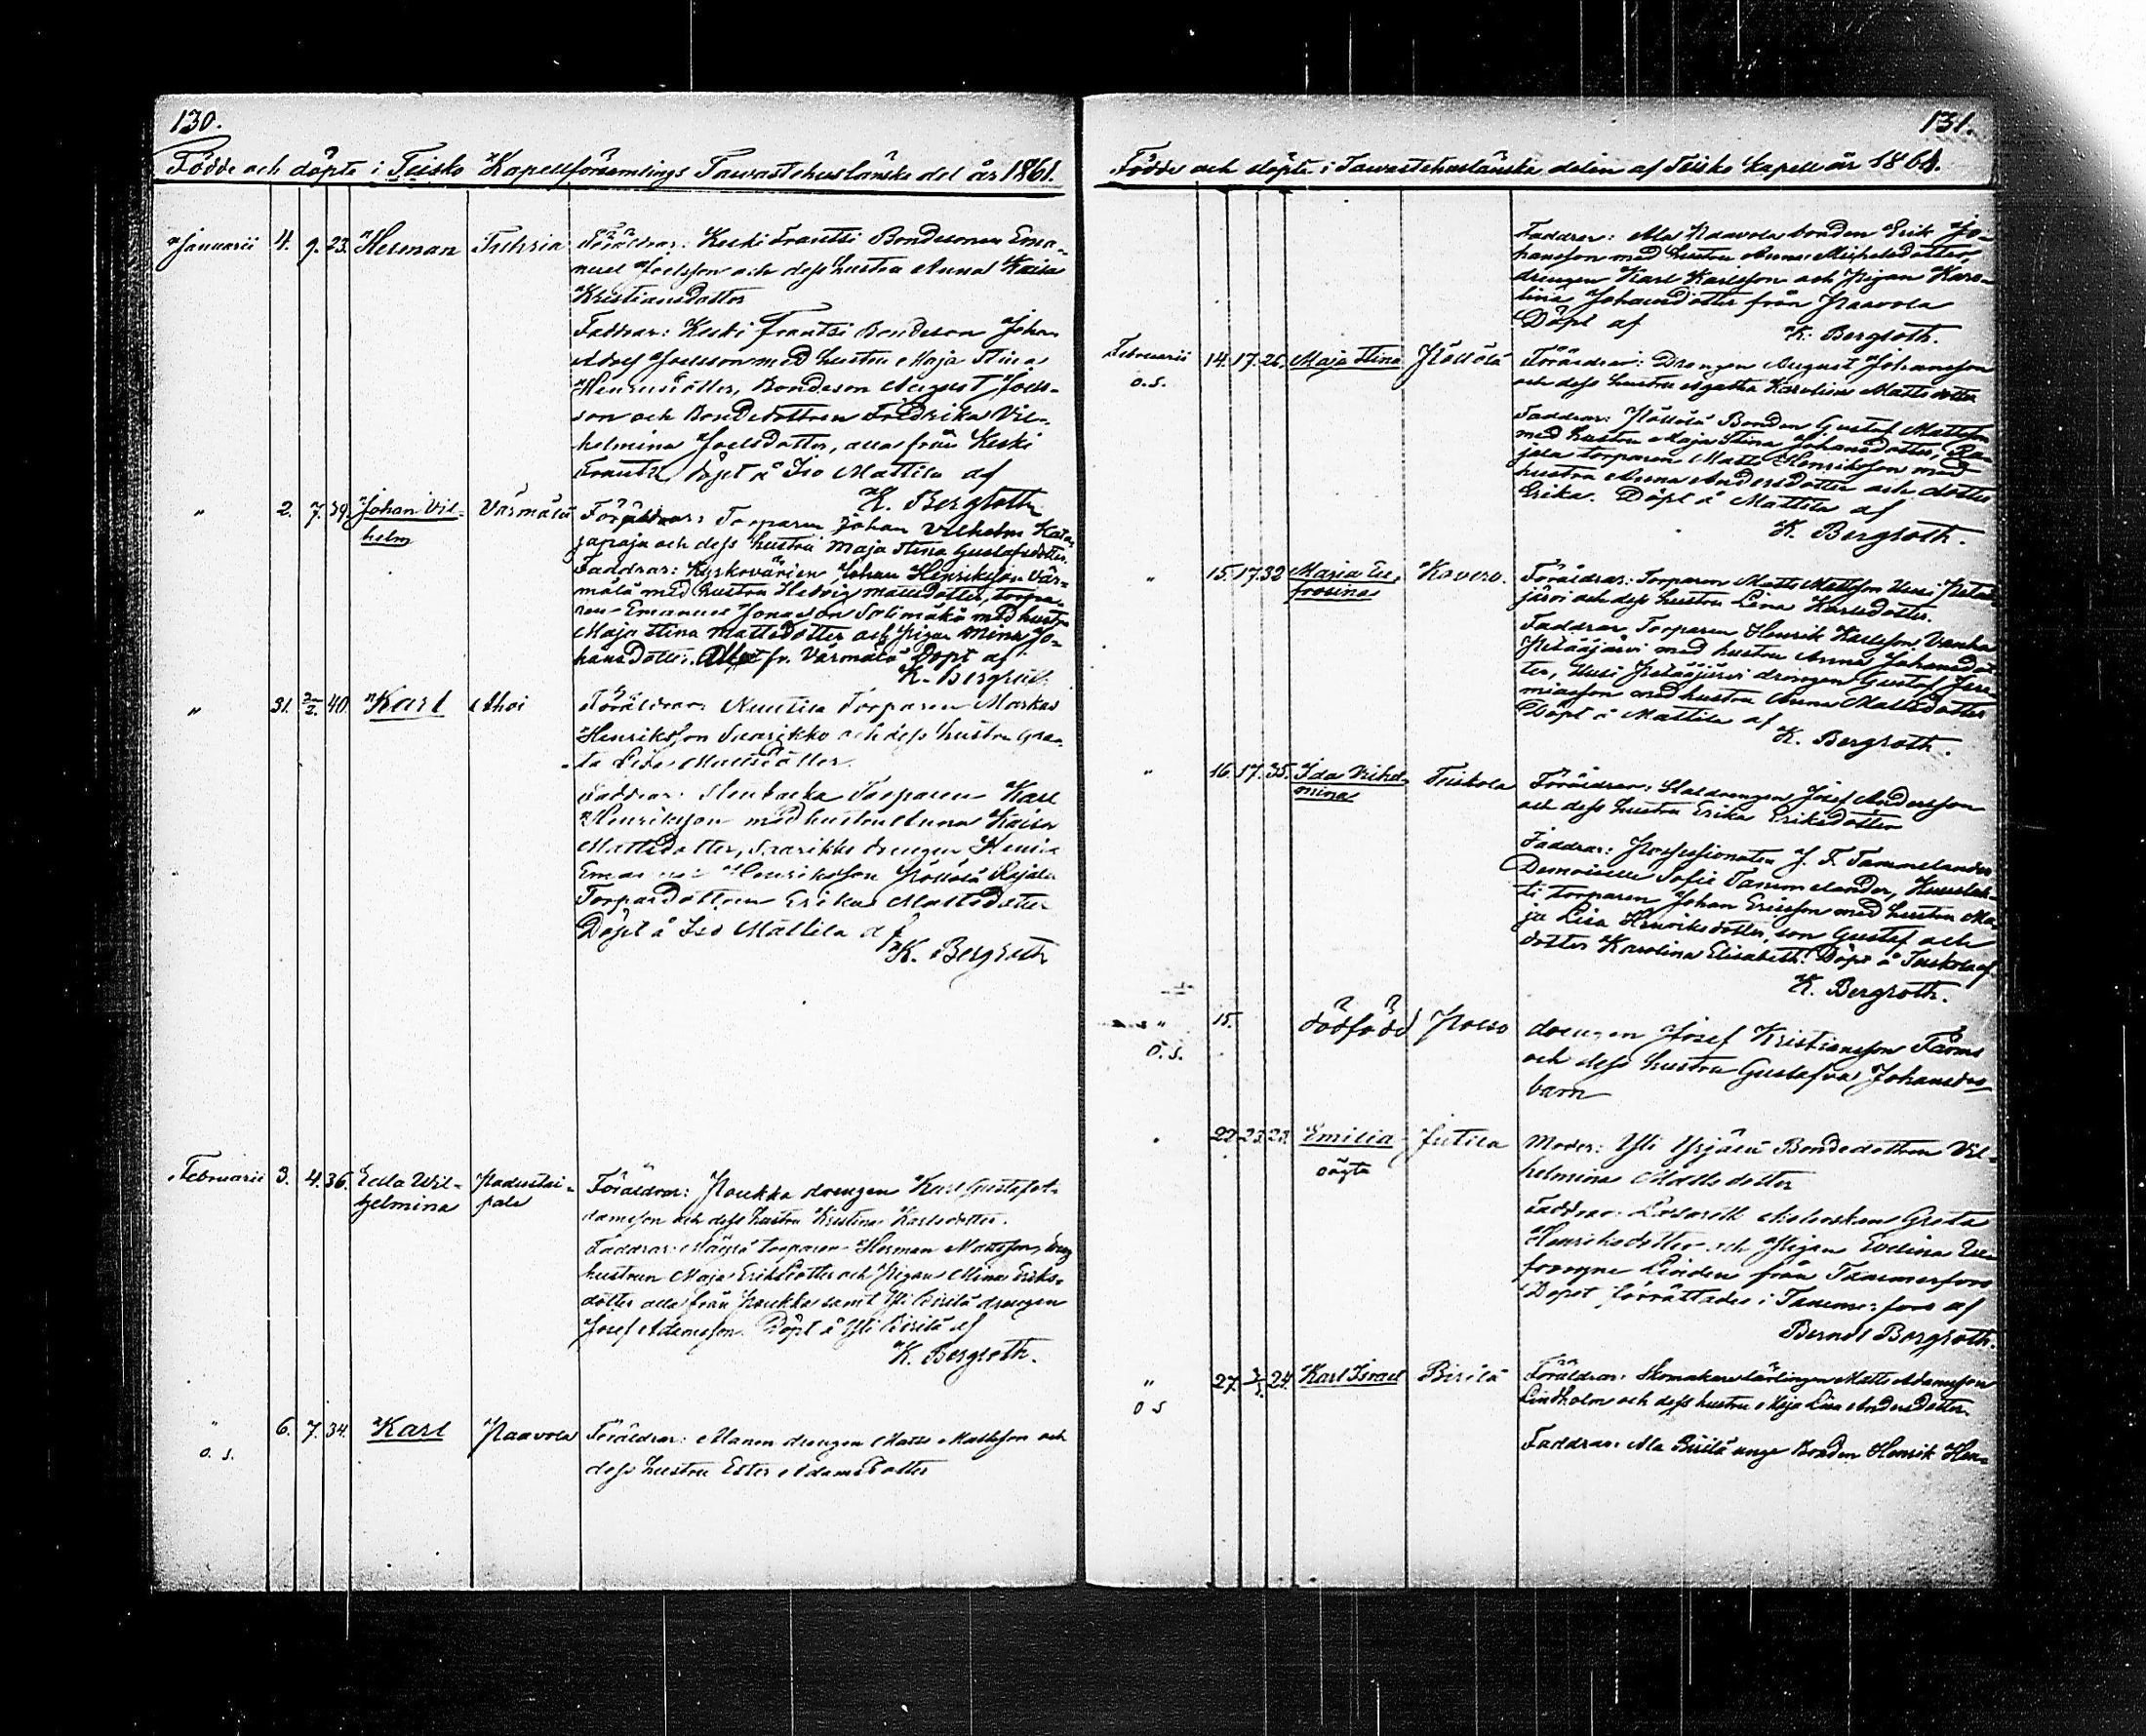 130.
Födde och döpte i Teisko Kapellförsamlings Tawastehuslänska del år 1861.
Januarii 4. 9. 23. Herman Tuhria Föräldrar: Keski Frantsi Bondesonen Ema-
nuel Joelsson och dess hustru Anna Kaisa
Kristiansdotter
Faddrar: Keski Frantsi Bondeson Johan
Adolf Joelsson med hustru Maja Stina
Henriksdotter, Bondeson August Joels-
son och Bondedottren Fredrika Vil-
helmina Joelsdotter, alla från Keski
Frantsi Döpt å Iso Mattila af
K. Bergroth
" 2. 7. 39. Johan Vil- Värmälä Föräldrar: Torparen Johan Vilhelm
helm
och dess hustru Maja Stina Gustafsdotter.
Faddrar: Kyrkovärden Johan Henriksson Vär-
mälä med hustru Hedvig Mattsdotter, torpa-
ren Emanuel Jonasson Salimäki med hustru
Maja Stina Mattsdotter och Pigan Mina Jo-
hansdotter. Alla fr. Värmälä Döpt af
K. Bergroth
" 31. 2/2. 40. Karl Ahoi Föräldrar: Nuutila Torparen Markus
Henriksson Saarikko och dess hustru Gre-
ta Lisa Mattsdotter.
Faddrar: Stenbacka Torparen Karl
Henriksson med hustru Anna Kaisa
Mattsdotter, Saarikko drengen
Henriksson Pöllölä
Torpardottren Erika Mattsdotter
Döpt å Iso Mattila af
K. Bergroth
Februarii 3. 4. 36. Edla Wil- Padustai-
helmina pale
Föräldrar: Poukka drengen Karl Gustaf A-
damsson och dess hustru Kristina Karlsdotter.
Faddrar: torparen Herman Mattsson,
hustrun Maja Eriksdotter och Pigan Mina Eriks-
dotter alla från Poukka samt Yli Birilä drengen
Josef Adamsson. Döpt å Yli Birilä af
K. Bergroth.
" 6. 7. 34. Karl Paavola Föräldrar: Alanen drengen Matts Mattsson och
o. s.
dess hustru Ester Adamsdotter
131.
Födde och döpte i Tawastehuslänska delen af Teisko Kapell år 1861.
Faddrar: Ala Paavola bonden Erik Jo-
hansson med hustru Anna Michelsdotter,
drengen Karl Karlsson och Pigan Karo-
lina Johansdotter från Paavola
Döpt af K. Bergroth.
Februarii 14. 17. 26. Maja Stina Pöllölä Föräldrar: Drengen August Johansson
o. s.
och dess hustru Agatha Karolina Mattsdotter
Faddrar: Pöllölä Bonden Gustaf Mattsson
med hustru Maja Stina Johansdotter, Ra-
jala torparen Matts Henriksson med
hustru Anna Andersdotter och dotter
Erika. Döpt å Mattila af
K. Bergroth.
" 15. 17. 32 Maria Eu- Kovero. Föräldrar: Torparen Matts Mattsson Uusi Petää-
frosina
järvi och dess hustru Lena Karlsdotter.
Faddrar Torparen Henrik Karlsson Vanha
Petääjärvi med hustru Anna Johansdot-
ter, Uusi Petääjärvi drengen Gustaf Jere-
miasson med hustru Anna Mattsdotter
Döpt å Mattila af
K. Bergroth.
" 16. 17. 35. Ida Vilhel- Teiskola Föräldrar: Staldrengen Josef Andersson
mina
och dess hustru Erika Eriksdotter
Faddrar: Possessionaten J. F. Tammelander
Demoiselle Sofie Tammelander,
torparen Johan Ericsson med hustru Ma-
ja Lisa Henriksdotter, son Gustaf och
dotter Karolina Elisabeth. Döpt å Teiskola af
K. Bergroth.
" 15. dödfödd Polso drengen Josef Kristiansson
o. s.
och dess hustru Gustafva Johansdos
barn
" 22. 23. 23. Emilia Jutila Moder: Yli Yrjälä Bondedottren Vil-
oägta
helmina Mattsdotter
Faddrar: Greta
Henriksdotter och Pigan Evelina
Linden från Tammerfors
Dopet förrättades i Tammerfors af
Berndt Bergroth.
" 27. 3/3. 24. Karl Israel Birilä Föräldrar: Skomakarelärlingen Matts Adamsson
o s
Lindholm och dess hustru Maja Lisa Andersdotter.
Faddrar: Ala Birilä unge Bonden Henrik Hen-